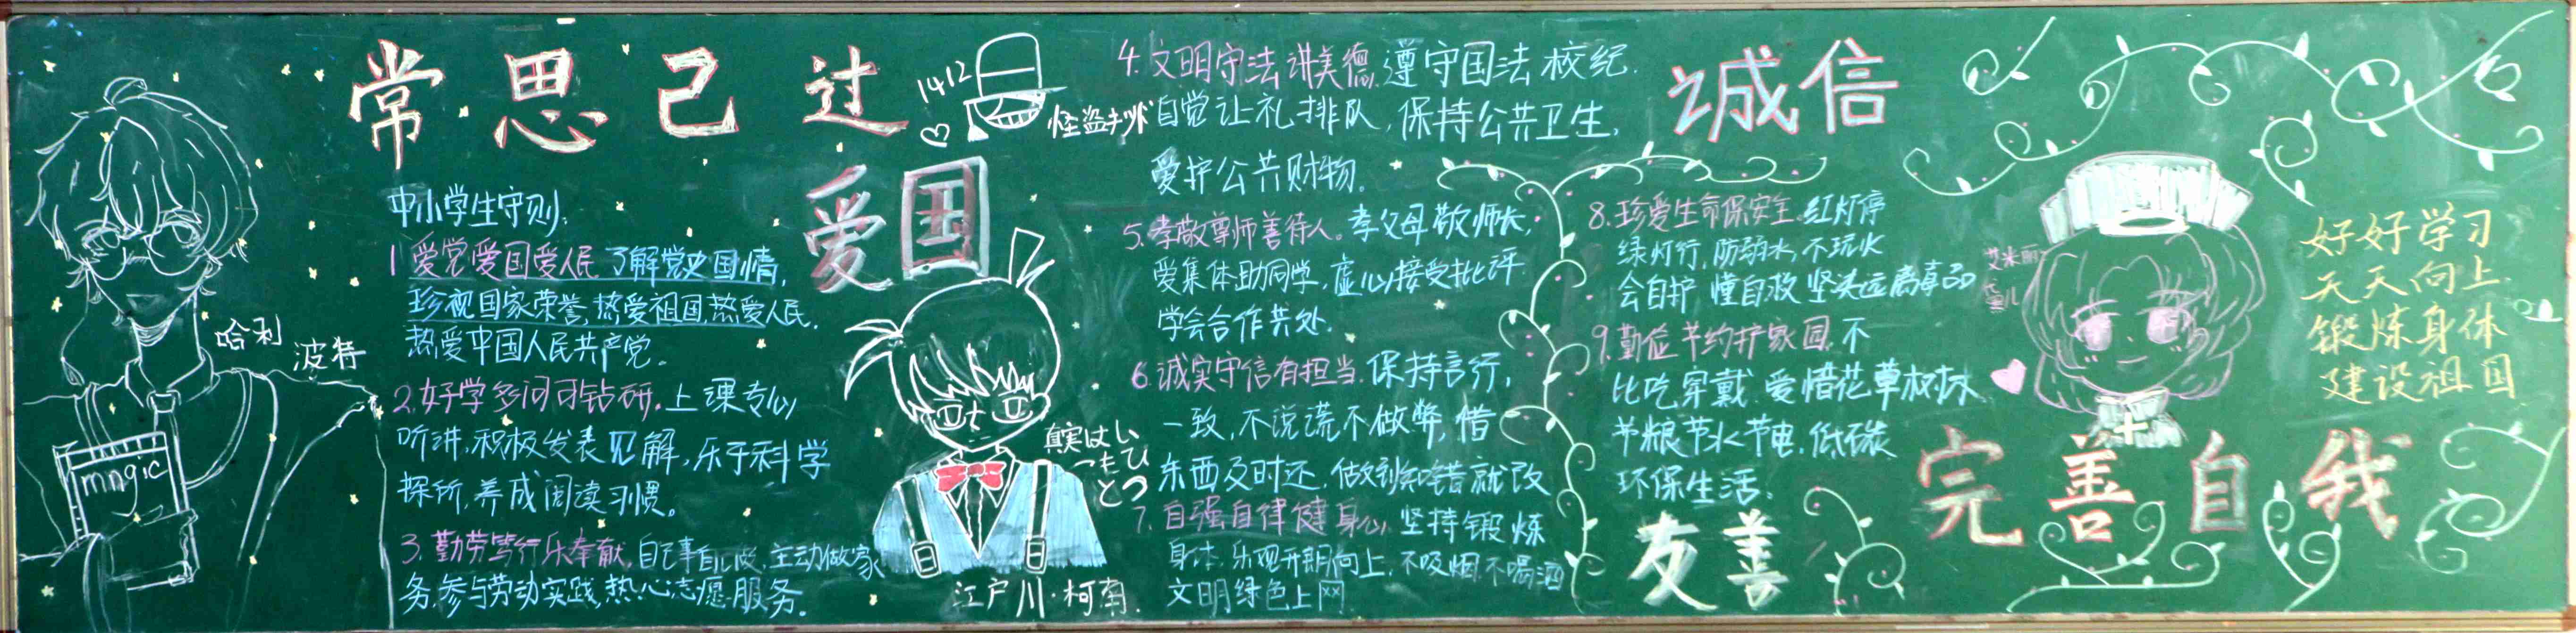 常思己过
1412
怪盗キッド
爱国
中小学生守则:
1 爱党爱国爱人民 了解党史国情,
珍视国家荣誉,热爱祖国,热爱人民,
热爱中国人民共产党。
2.好学多问习钻研。上课专心
听讲,积极发表见解,乐于科学
探所,养成阅读习惯。
3.勤劳笃行乐奉献,自己事自己做,主动做家
务,参与劳动实践,热心志愿服务。
哈利
波特
magic
真実はい
つもひ
とつ
江户川·柯南.
4.文明守法讲美德.遵守国法校纪.
自觉让礼排队,保持公共卫生,
爱护公共财物。
5.孝敬尊师善待人。孝父母敬师长,
爱集体助同学,虚心接受批评
学会合作共处.
6.诚实守信有担当.保持言行,
一致,不说谎不做弊,借
东西及时还,做到知错就改
7.自强自律健身心,坚持锻炼
身体,乐观开朗向上,不吸烟不喝酒
文明绿色上网
诚信
8.珍爱生命保安全.红灯停
绿灯行,防弱水,不玩火
会自护,懂自救 坚决远离毒品
9.勤俭节约护家园.不
比吃穿戴.爱惜花草树木
节粮节水节电,低碳
环保生活。
友善
艾米丽
好好学习
天天向上
锻炼身体
建设祖国
完善自我